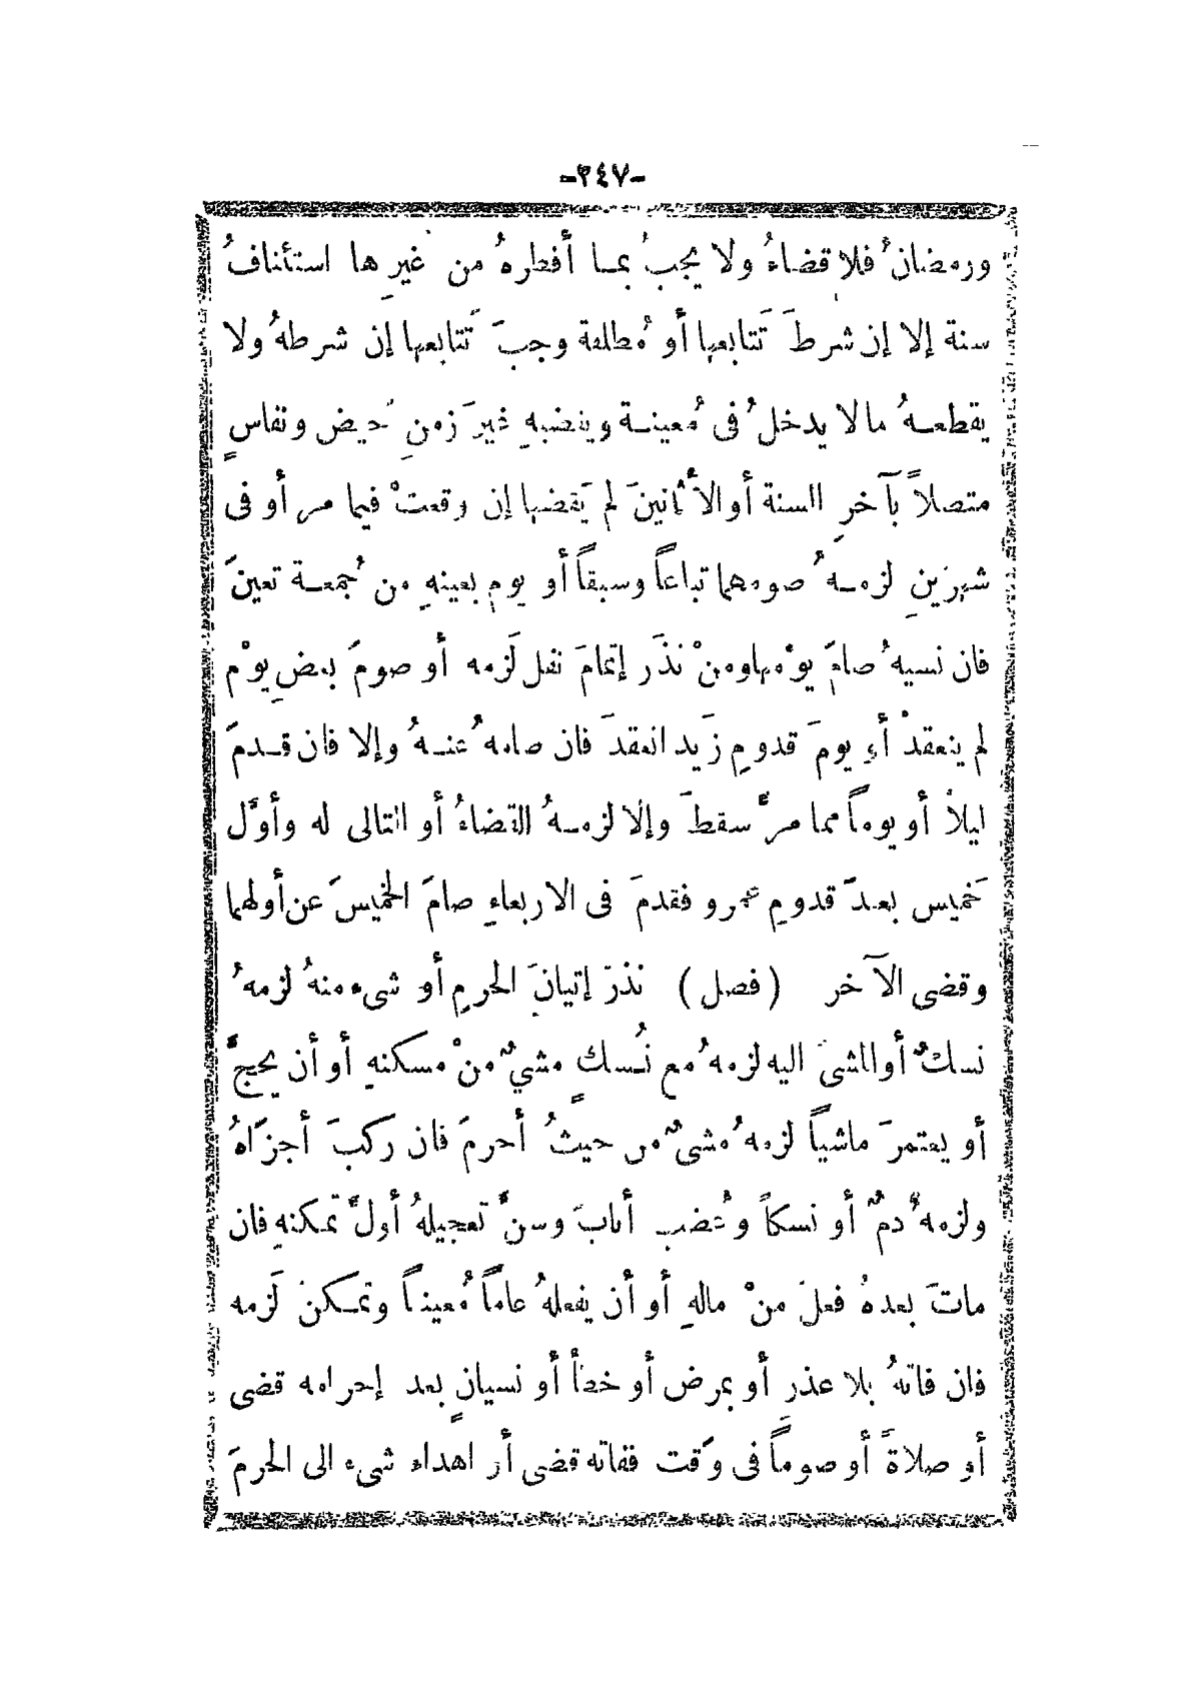 -٣٤٧-
ورمضانُ فلا قضاءُ ولا يجبُ بما أفطرهُ من غيرِها استئنافُ
سنة إلا إن شرطَ تَتابعها أو مُطلقة وجبَ تَتابعها إن شرطهُ ولا
يقطعهُ مالا يدخلُ فى مُعينة ويقضيهِ غيرَ زمنِ حيض ونفاسٍ
متصلاً بآخرِ السنة أوالأثانينَ لم يَقضها إن وقعتْ فيما مر أو فى
شهرَينِ لزمهُ صومهما تباعاً وسبقاً أو يومٍ بعينهِ من جُمعة تعينَ
فان نسيهُ صامَ يوْمهاومنْ نذَر إتمامَ نفل لَزمه أو صومَ بعضِ يوْم
لم ينعقدْ أو يومَ قدومِ زَيد انعقدَ فان صامهُ عنهُ وإلا فان قدمَ
ليلاً أو يوماً مما مرَّ سقطَ وإلا لزمهُ القضاءُ أو التالى له وأوَّل
خَميس بعدَ قدومِ عمرو فقدمَ فى الاربعاءِ صامَ الخميسَ عن أولهما
وقضى الآخر (فصل) نذرَ إتيانَ الحرمِ أو شىء منهُ لزمهُ
نسكٌ أوالمشىَ اليه لزمهُ مع نُسكٍ مشيٌ منْ مسكنهِ أو أن يحجَّ
أو يعتمرَ ماشياً لزمهُ مشىٌ من حيثُ أحرمَ فان ركبَ أجزَاهُ
ولزمهُ دمٌ أو نسكاً وعُضب أنابَ وسنَّ تعجيلهُ أولَ تمَكنهِ فان
ماتَ بعدهُ فعلَ منْ مالهِ أو أن يفعلهُ عاماً مُعيناً وتمكنَ لَزمه
فان فاتهُ بلا عذر أو بمرض أو خطأ أو نسيانٍ بعد إحرامه قضى
أو صلاةً أو صوماً فى وَقت ففاته قضى أو اهداء شىء الى الحرمَ